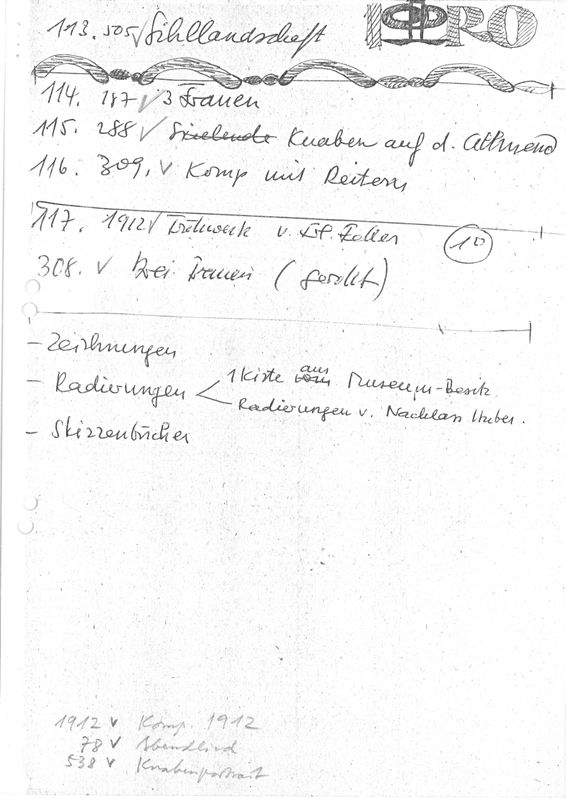 113. 505 √ Sihllandschaft
PRO
114. 187 √ 3 Frauen
115. 288 √ Spielende Knaben auf d. Allmend
116. 309. √ Komp mit Reitern
117. 1912 √ v.
10
308. √ Drei Frauen (gerollt)
– Zeichnungen
– Radierungen
1 Kiste aus Museum-Besitz
Radierungen v. Nachlass Huber.
– Skizzenbücher
1912 √ Komp. 1912
78 √ Abendlied
538 √ Knabenportrait